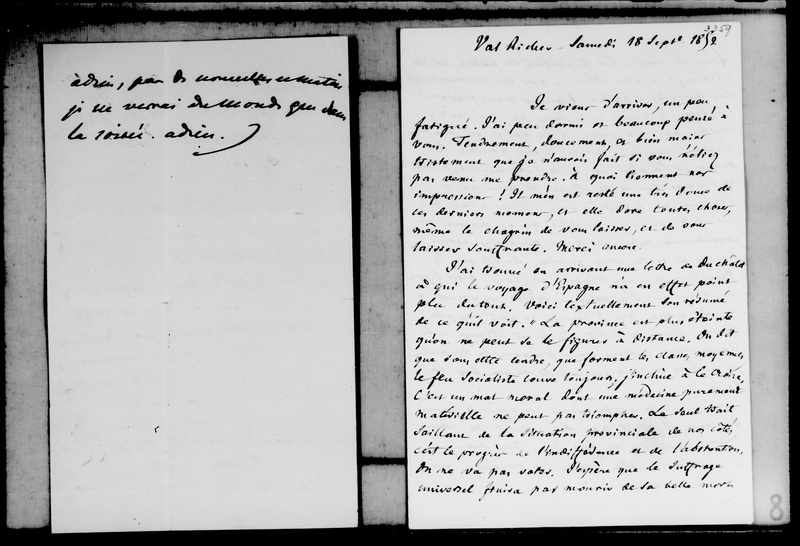 adieu, pas de nouvelles
je ne verrai du monde que dans
la soirée. adieu.
3359
Val Richer – Samedi 18 Septe 1852
Je viens d'arriver, un peu
fatigué. J'ai peu dormi et beaucoup pensé à
vous. Tendrement, doucement, et bien moins
tristement que je n'aurois fait si vous n'étiez
pas venu me prendre. à quoi tiennent nos
impressions ! Il m'en est resté une très douce de
ces derniers momens, et elle dore toutes choses,
même le chagrin de vous laisser, et de vous
laisser souffrante. Merci encore.
J'ai trouvé en arrivant une lettre de Duchâtel
à qui le voyage d'Espagne n'a en effet point
plu du tout. Voici textuellement son résumé
de ce qu'il voit. « La province est plus éteinte
qu'on ne peut se le figurer à distance. On dit
que sous cette cendre, que forment les classes moyennes
le feu socialiste couve toujours, j'incline à le croire,
C'est un mal moral dont une médecine purement
matérielle ne peut pas triompher. Le seul trait
saillant de la situation provinciale de nos côtés,
c'est le progrès de l'indifférence et de l'abstention.
On ne va pas voter. J'espère que le suffrage
universel finira par mourir de sa belle mort
8